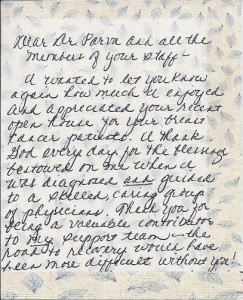 Dear Dr Parva and all the
members of your staff -
I wanted to let you know
again how much I enjoyed
and appreciated your recent
open house for your breast
cancer patients. I thank
God every day for the blessings
bestowed on me when I
was diagnosed and guided
to a skilled, caring group
of physicians. Thank you for
being a valuable contributor
to my support team - the
road to recovery would have
been more difficult without you!